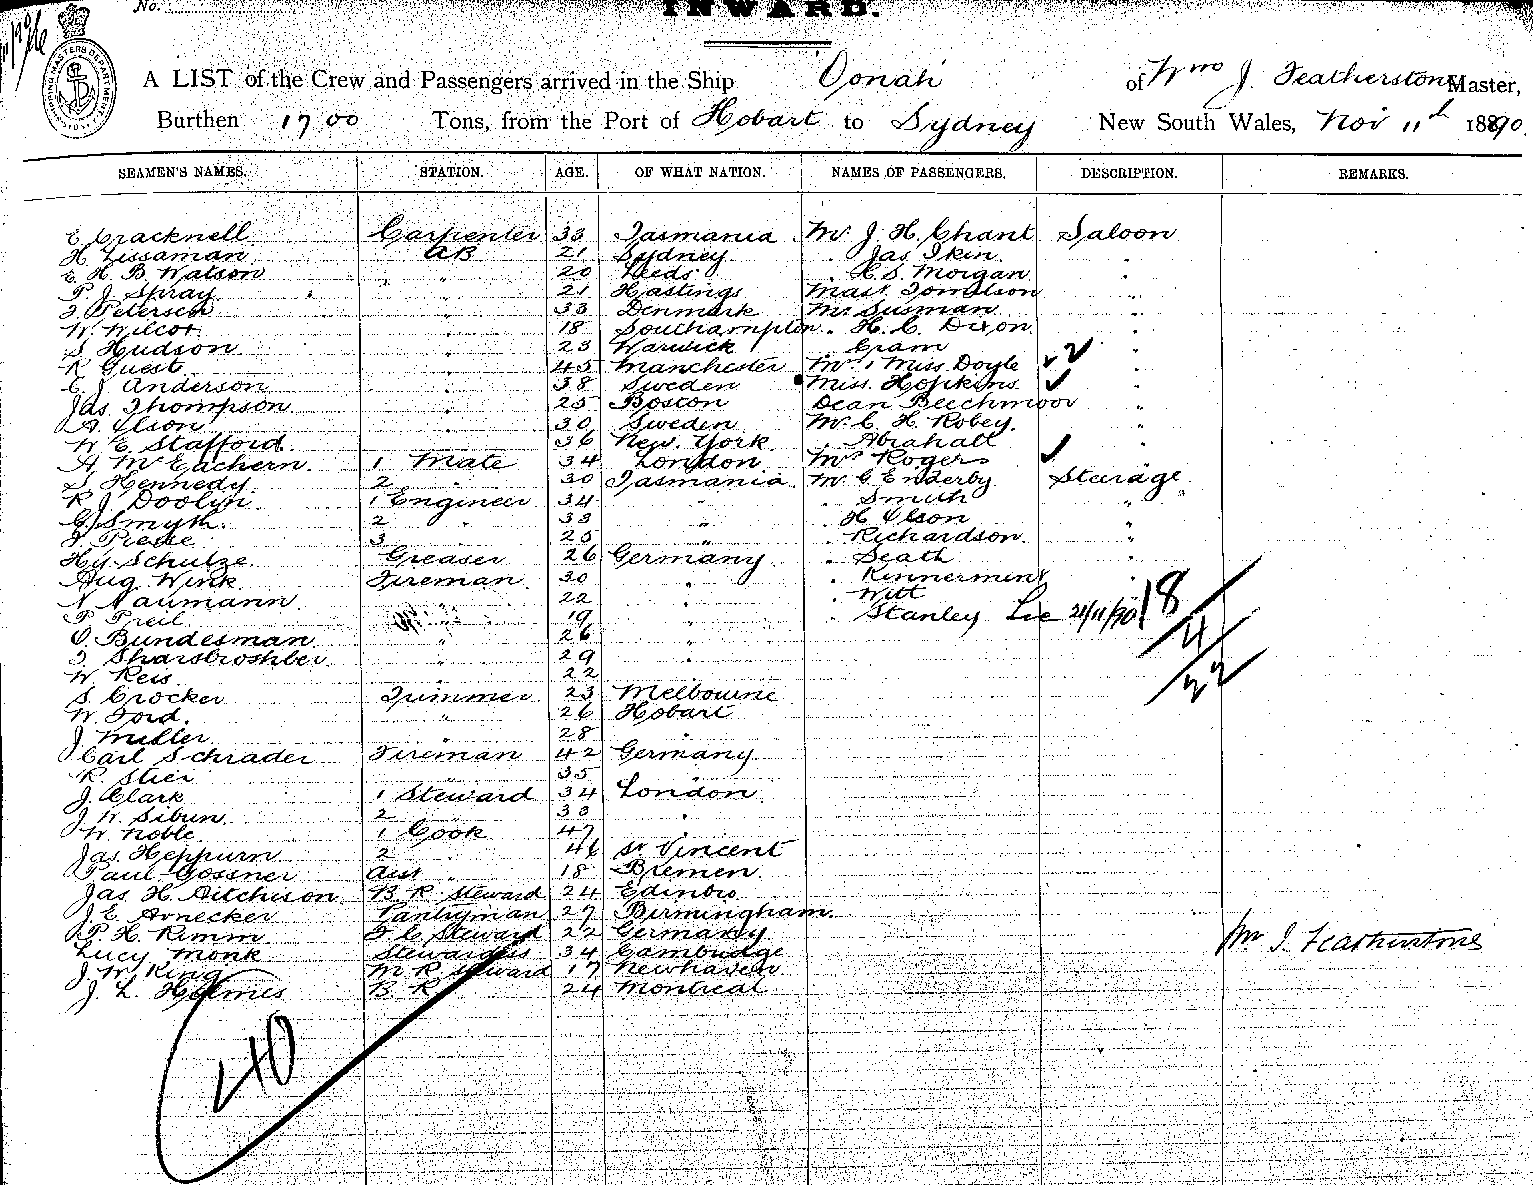 No.
INWARD.
SHIPPING MASTERS DEPARTMENT
A LIST of the Crew and Passengers arrived in the Ship Oonah of Wm J. Featherstone Master,
Burthen 1700 Tons, from the Port of Hobart to Sydney New South Wales, Nov 11th 1890.
SEAMEN'S NAMES. STATION. AGE. OF WHAT NATION. NAMES OF PASSENGERS. DESCRIPTION. REMARKS.
E Cracknell Carpenter 33 Tasmania Mr J. H. Chant Saloon
H Lissaman AB 21 Sydney " Jas Ikin "
E H. B. Watson " 20 Leeds " H. S. Morgan "
P. J. Spray " 21 Hastings Mast Tomlison "
Petersen " 33 Denmark Mr Susman "
W. Wilcox " 18 Southampton " H. C. Dixon "
S Hudson " 23 Warwick " Cram "
R Guest " 45 Manchester Mrs, Miss Doyle 2 "
C. J. Anderson " 38 Sweden Miss Hopkins "
Jas. Thompson " 25 Boston Dean Beechmoor "
A. Olson " 30 Sweden Mr C. H. Robey "
W E Stafford " 36 New York " Abrahall "
A. McEachern 1 Mate 34 London Mrs Rogers "
S Kennedy 2 " 30 Tasmania Mr C Enderby Stearage
R J Doolin 1 Engineer 34 " " Smith "
G. Smyth 2 " 33 " " H Olson "
Piesse 3 " 25 " " Richardson "
Hy. Schulze Greaser 26 Germany " Seath "
Aug Wink Fireman 30 " " Kinnermint "
N Naumann " 22 " " Witt
P Preil " 19 " " Stanley Lee 21/11/90 18
O. Bundesman " 26 " 4
" 29 " 22
W. Reis " 22
S Crocker Trimmer 23 Melbourne
W. Ford " 26 Hobart
J Miller 28 "
Carl Schrader Fireman 42 Germany
R. Stier " 35
J. Clark 1 Steward 34 London
J. W. Sibun 2 " 33 "
W Noble 1 Cook 47 "
Jas. Heppurn 2 " 46 St Vincent
Paul Gossner Asst " 18 Bremen
Jas. H. Aitchison B. R. Steward 24 Edinbro
J. E. Avnecker Pantryman 27 Birmingham
P. H. Rimm F C Steward 22 Germany Wm J. Featherstone
Lucy Monk Stewardess 34 Cambridge
J. W. King M R Steward 17 Newhaven
J. L. Holmes B. R 24 Montreal
40